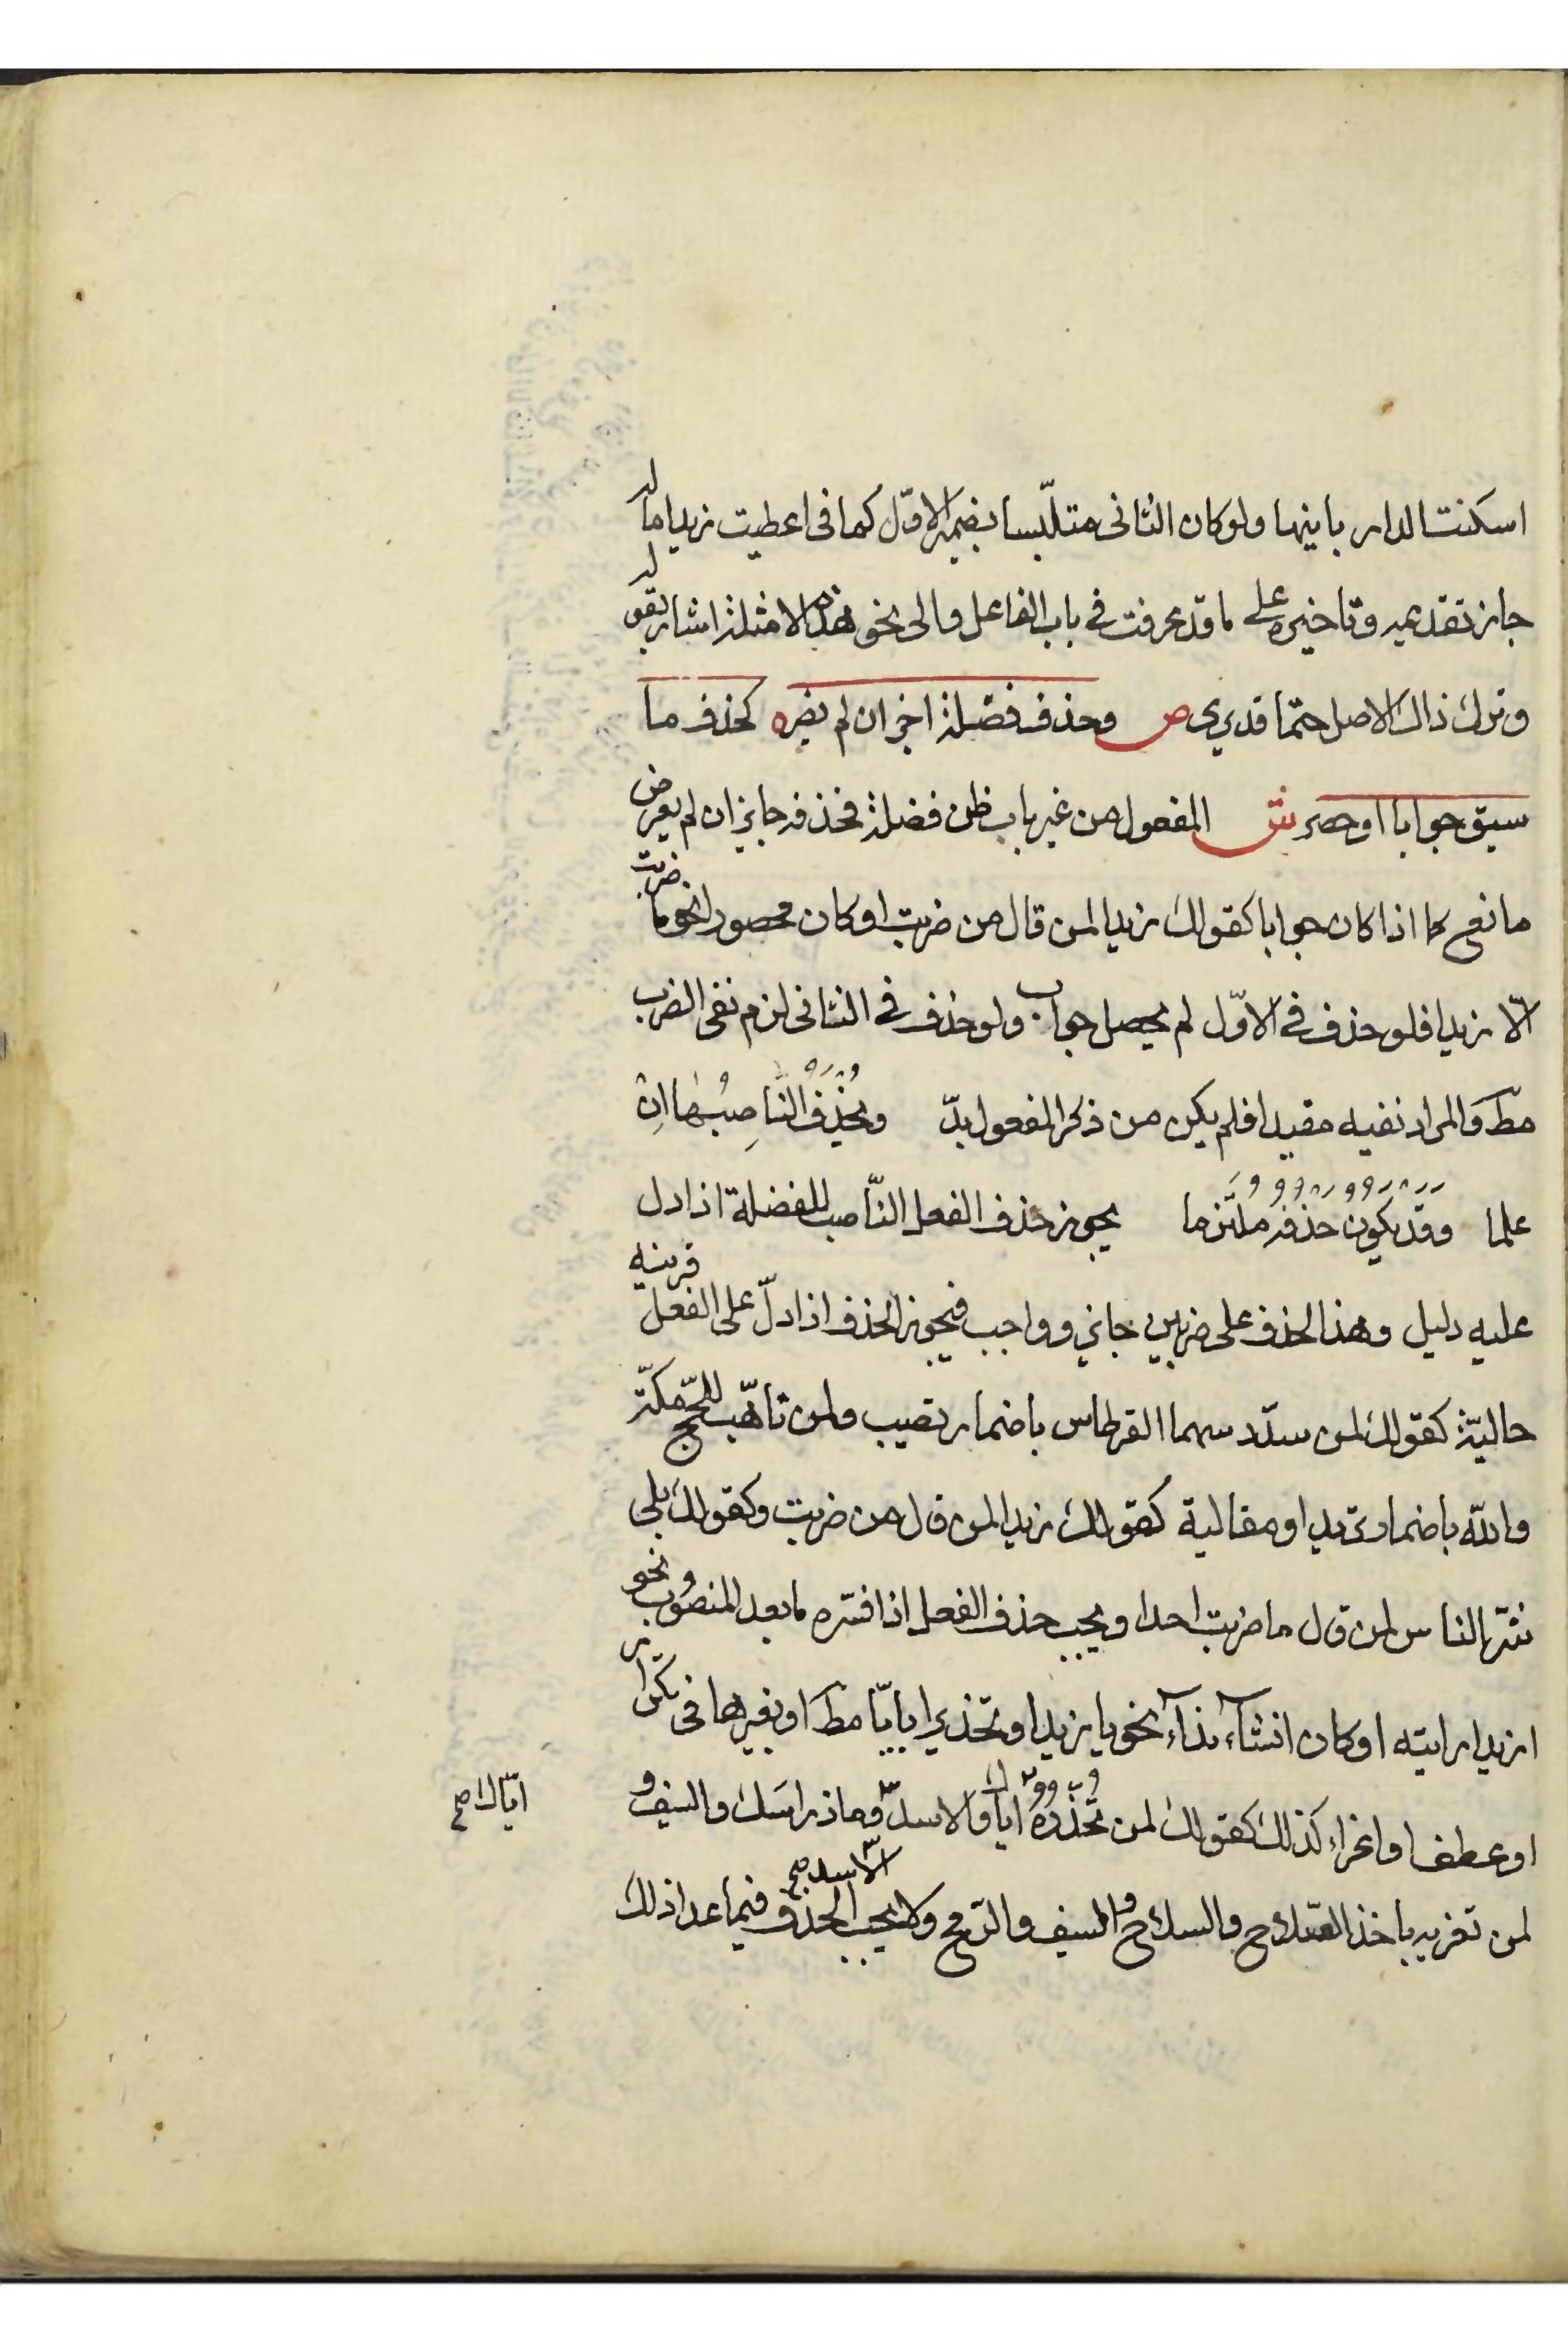 اسكنت الدار بانيها ولو كان الثاني متلبّسا بضمير الاوّل كما فى اعطيت زيدا ماله
جاز تقديمه وتاخيره على ما قد عرفت فى باب الفاعل والى نحو هذه الامثلة اشار بقوله
وترك ذاك الاصل حتما قد يرى ص وحذف فضلة اجز ان لم يضره كحذف ما
سيق جوابا او حصر ش المفعول من غير باب ظن فضلة فحذفه جايز ان لم يعرض
مانع كما اذا كان جوابا كقولك زيدا لمن قال من ضربت او كان محصورا نحو ما ضربت
الّا زيدا فلو حذف فى الاوّل لم يحصل جواب ولو حذف فى الثانى لزم نفى الضرب
مط والمراد نفيه مقيدا فلم يكن من ذكر المفعول بدّ ويُحْذَفُ النَّاصِبُهَا اِنْ
علما وَقَدْ يَكُونُ حَذْفُهُ مُلْتَزَما يجوز حذف الفعل النّاصب للفضلة اذا دل
عليه دليل وهذا الحذف على ضربين جايز وواجب فيجوز الحذف اذا دلّ على الفعل قرينه
حاليّة كقولك لمن سدّد سهما القرطاس باضمار تصيب ولمن تاهّب للحجّ مكّة
والله باضمار تريد او مقالية كقولك زيدا لمن قال من ضربت وكقولك بلى
شرّ الناس لمن قال ما ضربت احدا ويجب حذف الفعل اذا فسّره ما بعد المنصوب نحو
ازيدا رايته او كان انشاء نداء نحو يا زيدا او تحذيرا بايّا مط او بغيرها فى تكرار
او عطف او اغراء كذلك كقولك لمن تحذّره اياك والاسد وماز راسك والسيف و
ايّاك صح
الاسد صح
لمن تغريه باخذ السلاح والسلاح والسيف والرّمح ولا يجب الحذف فيما عدا ذلك